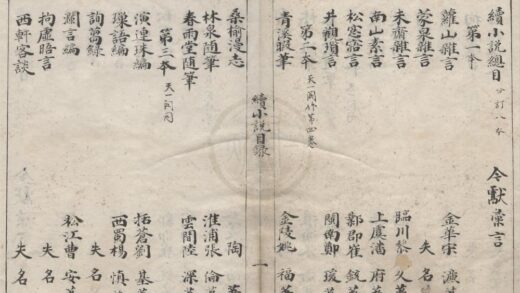 續小說總目 分訂八本 今獻彙言
第一本
蘿山雜言 金華宋濂
蒙泉雜言 失名
未齋雜言 臨川黎久
南山素言 上虞潘府
松窓寤言 鄴郡崔銑
井觀瑣言 閩南鄭瑗
第二本 天一閣作第四卷
青溪暇筆 金陵姚福
續小說目錄 一
桑榆漫志 陶
林泉隨筆 淮浦張
春雨堂隨筆 雲間陸深
第三本 天一閣同
演連珠編 括蒼劉基
璅語編 西蜀楊慎
詢蒭錄 失名
讕言編 松江曹安
拘虛晤言 失名
西軒客談 失名